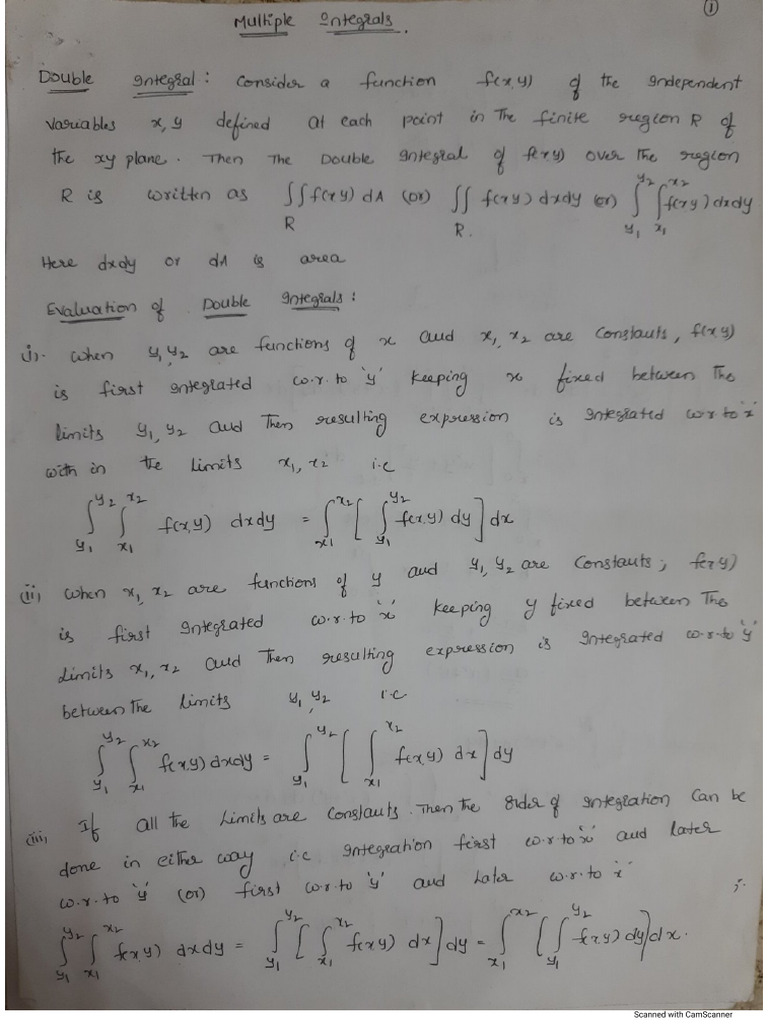 ①
Multiple Integrals.
Double Integral: Consider a function f(x,y) of the Independent
variables x, y defined at each point in the finite region R of
the xy plane. Then the Double Integral of f(x,y) over the region
R is written as ∫∫_R f(x,y) dA (or) ∫∫_R. f(x,y) dxdy (or) ∫_{y₁}^{y₂} ∫_{x₁}^{x₂} f(x,y) dxdy
Here dxdy or dA is area
Evaluation of Double Integrals:
(i). when y₁, y₂ are functions of x and x₁, x₂ are Constants, f(x,y)
is first Integrated w.r.to 'y' keeping x fixed between the
limits y₁, y₂ and then resulting expression is Integrated w.r.to 'x'
with in the limits x₁, x₂ i.e
∫_{y₁}^{y₂} ∫_{x₁}^{x₂} f(x,y) dxdy = ∫_{x₁}^{x₂} [ ∫_{y₁}^{y₂} f(x,y) dy ] dx
(ii) when x₁, x₂ are functions of y and y₁, y₂ are Constants, f(x,y)
is first Integrated w.r.to 'x' keeping y fixed between the
Limits x₁, x₂ and then resulting expression is Integrated w.r.to 'y'
between the limits y₁, y₂ i.e
∫_{y₁}^{y₂} ∫_{x₁}^{x₂} f(x,y) dxdy = ∫_{y₁}^{y₂} [ ∫_{x₁}^{x₂} f(x,y) dx ] dy
(iii) If all the Limits are Constants. Then the order of Integration can be
done in either way i.e Integration first w.r.to 'x' and later
w.r.to 'y' (or) first w.r.to 'y' and later w.r.to 'x'
∫_{y₁}^{y₂} ∫_{x₁}^{x₂} f(x,y) dxdy = ∫_{y₁}^{y₂} [ ∫_{x₁}^{x₂} f(x,y) dx ] dy = ∫_{x₁}^{x₂} [ ∫_{y₁}^{y₂} f(x,y) dy ] dx.
Scanned with CamScanner